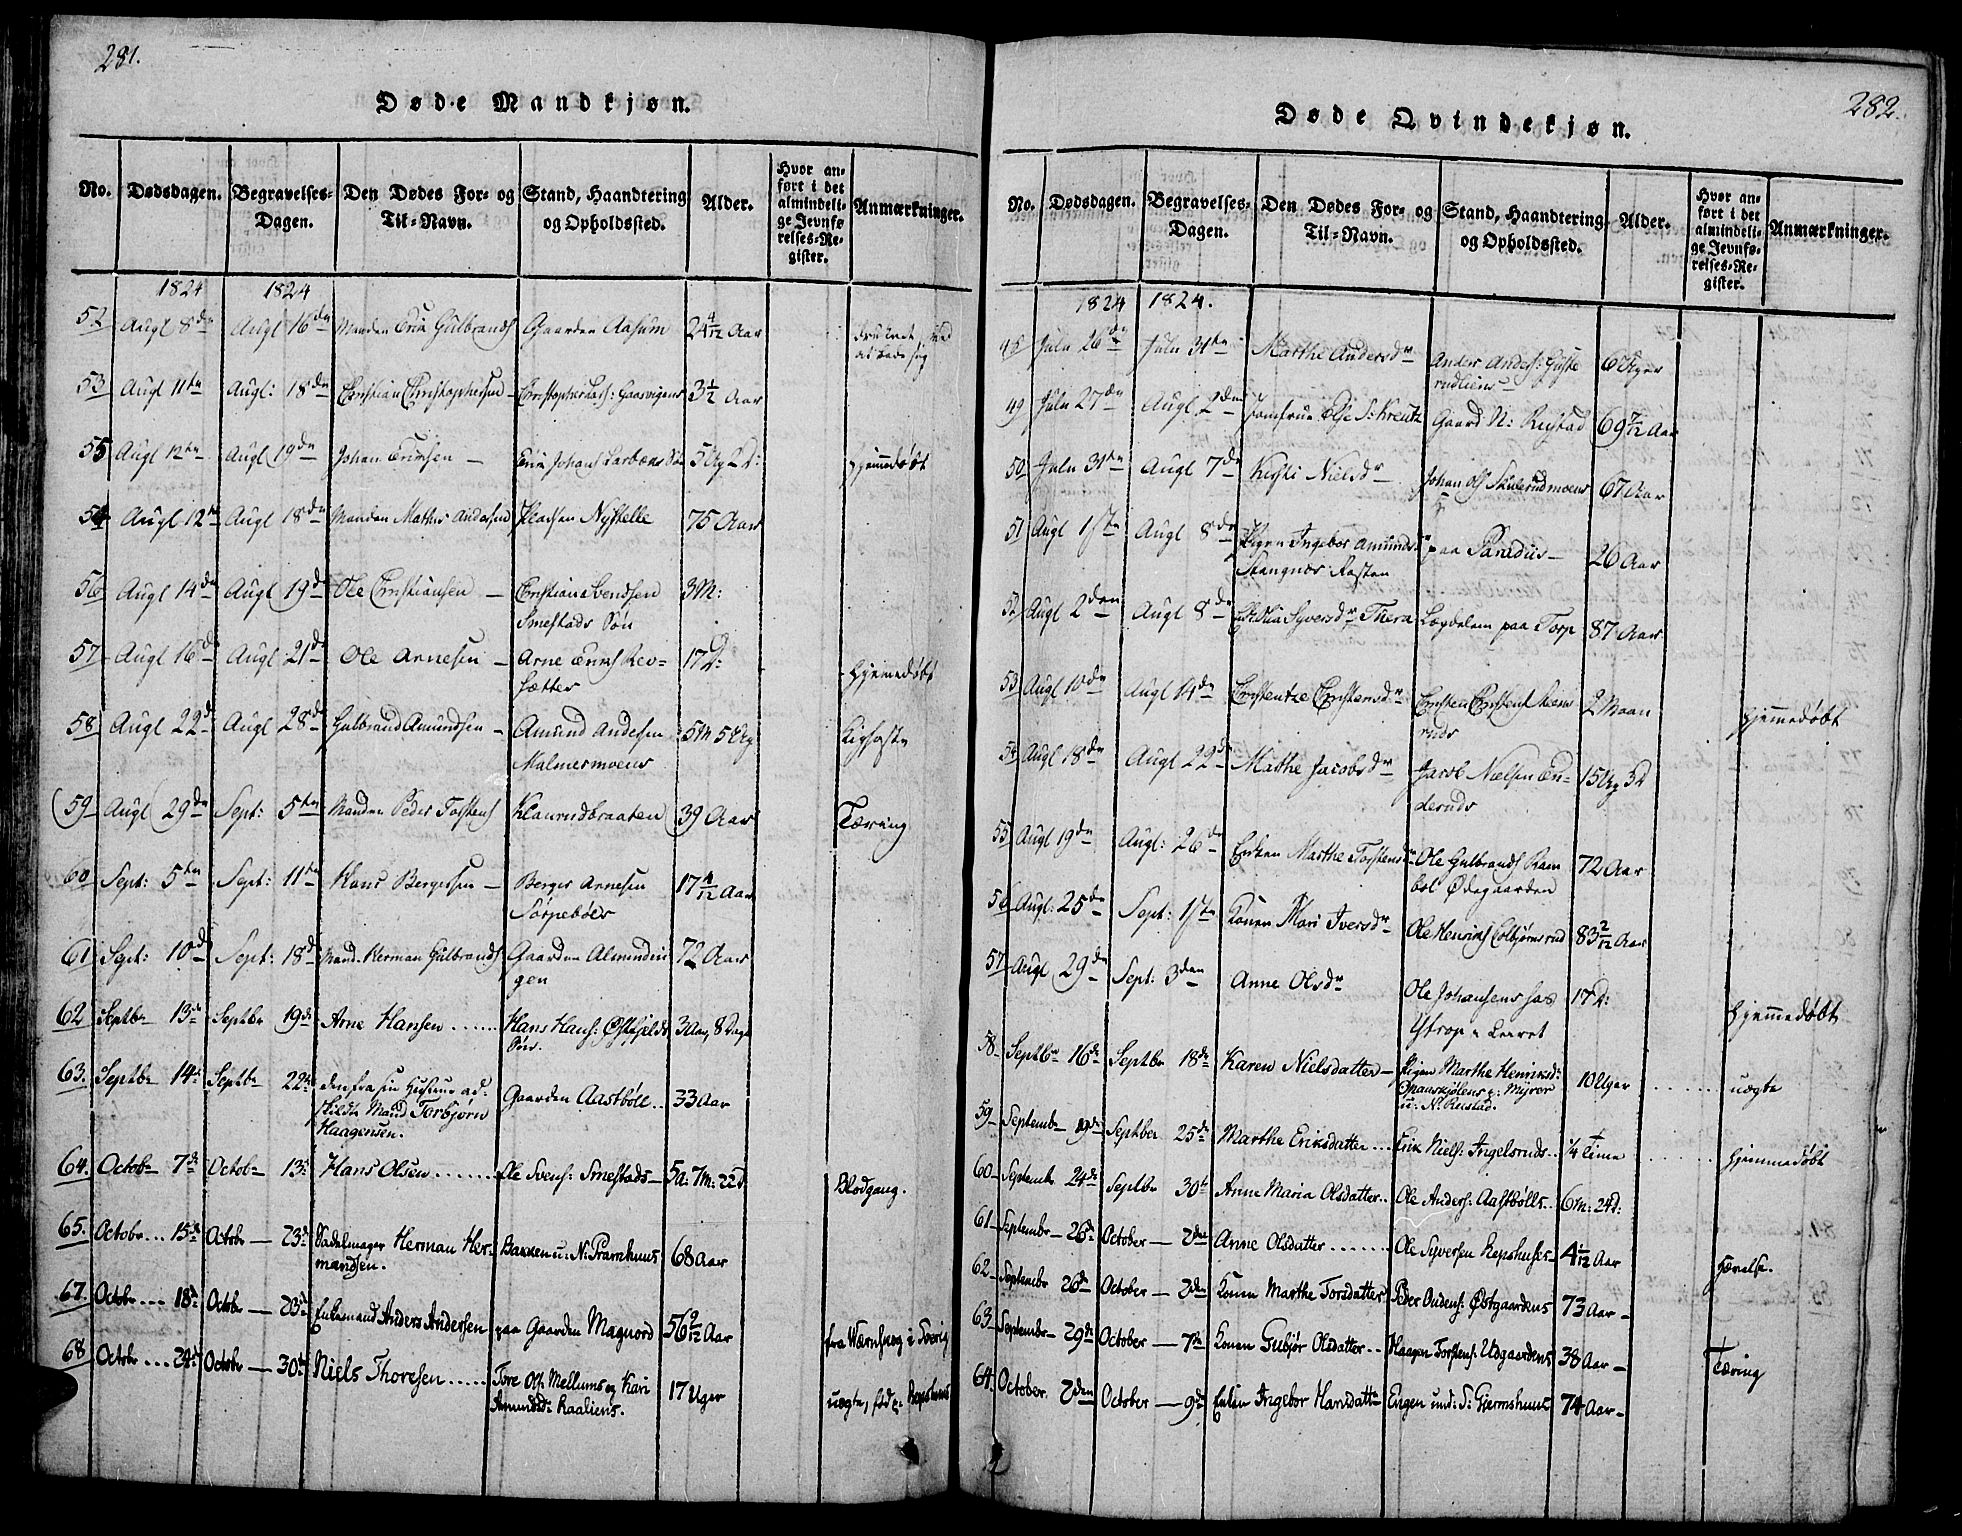 281.
Døde Mandkjøn.
No. Dødsdagen. Begravelses-Dagen. Den Dødes For- og Til-Navn. Stand, Haandtering og Opholdssted. Alder. Hvor anført i det almindelige Jevnførelses-Register. Anmærkninger.
1824 1824
52 Augl 8de Augl 16de Manden Erik Gulbrands Gaarden Aasum 24 4/12 Aar
53 Augl 11te Augl: 18de Christian Christophersen Christopher Lars: Gaasvigens 3 1/2 Aar
55 Augl 12te Augl 19de Johan Erichsen 5 Ug 2 D: hjemmedøbt
54 Augl 12te Augl 18de Manden Mathis Andersen Pladsen Nystelle 75 Aar
56 Augl 14de Augl 19de Ole Christiansen Christian Svendsen
Smestads Søn 3 M:
57 Augl 16de Augl 21de Ole Arnesen Arne Erichs Rev-
sætter 17 D: hjemmedøbt
58 Augl 22de Augl 28de Gulbrand Amundsen Amund Andersen
Malmermoens 5 M 5 Ug
59 Augl 29de Sept: 5te Manden Peder Torstens Klanrudbraaten 39 Aar Tæring
60 Sept: 5te Sept: 11te Hans Bergersen Berger Arnesen
Sørpebøls 17 4/12 Aar
61 Sept: 10de Sept: 18de Mand. Herman Gulbrands Gaarden Almindin
gen 72 Aar
62 Septbr 13de Septbr 19de Arne Hansen Hans Hans: Østfjelds
Søn. 3 Aar, 8 Dage
63. Septbr 14de Septbr 22de den fra sin Hustrue ad-
skildte Mand Torbjørn
Haagensen. Gaarden Aastböll 33 Aar
64. Octobr 7de Octobr 13de Hans Olsen Ole Svens: Smestads 5 a: 7 m: 22 d. Blodgang.
65. Octobr 15de Octobr 23de Sadelmager Herman Her-
mandsen. Bakken u. N: Pramhuus 68 Aar
67. Octobr 18de Octobr 23de Enkemand Anders Andersen paa Gaarden Magnord 56 9/12 Aar fra Wærnskog i Sverig
68 Octobr 24de Octobr 30te Niels Thoresen Tore Ols: Mellums og Kari
Amundsd: Kaaliens. 17 Uger uægte, fød p: Repshuus
282.
Døde Qvindekjøn.
No. Dødsdagen. Begravelses-Dagen. Den Dødes For- og Til-Navn. Stand, Haandtering og Opholdssted. Alder. Hvor anført i det almindelige Jevnførelses-Register. Anmærkninger.
1824 1824.
Julu 26de Julu 31te Marthe Andersdr Anders Anders:
6 Uger
49 Julu 27de Augl 2den Jomfrue Else S: Kreutz Gaard N: Ristad 69 7/12 Aar
50 Julu 31te Augl 7de Kisti Nielsdr Johan Ols Skulerudmoens 67 Aar
51 Augl 1ste Augl 8de Pigen Ingebor Amunds
paa Paradiis 26 Aar
52 Augl 2den Augl 8de Syversdr Thera Lægdelem paa Torp 87 Aar
53 Augl 10de Augl 14de Christentze Christensdr Christen Christens
2 Maan hjemmedøbt
54 Augl 18de Augl 22de Marthe Jacobsdr Jacob Nielsen En-
deruds 15 Ug 3 D
55 Augl 19de Augl: 26de Enken Marthe Torstensdr Ole Gulbrands Ram
bøl Ødegaarden 72 Aar
56 Augl: 25de Sept: 1ste Konen Mari Iversdr Ole Henrichs Colbjørnsrud 83 2/12 Aar
57 Augl 29de Sept: 3den Anne Olsdr Ole Johansens
17 D: hjemmedøbt
58 Septbr 16de Septbr 18de Karen Nielsdatter Pigen Marthe Henriksd:
u: N: Reistad. 10 Uger uægte
59 Septembr 19de Septber 25de Marthe Eriksdatter Erik Niels: Ingelsruds 1/4 Time hjemmedøbt
60 Septembr 24de Septbr 30te Anne Maria Olsdatter Ole Anders: Aastbølls 6 m: 24 d:
61 Septembr 26de October 2den Anne Olsdatter Ole Syversen Repshuses 4 1/12 Aar Hævelse.
62 Septembr 26de October 3den Konen Marthe Torsdatter Peder Oudens: Østgaardens 73 Aar
63 Septembr 29de October 7de Konen Gubjør Olsdatter Haagen Torstens: Udgaardens 38 Aar Tæring
64. October. 2den October 9de Enken Ingebor Hansdattr Engen und: S: Gjermshuus 74 Aar